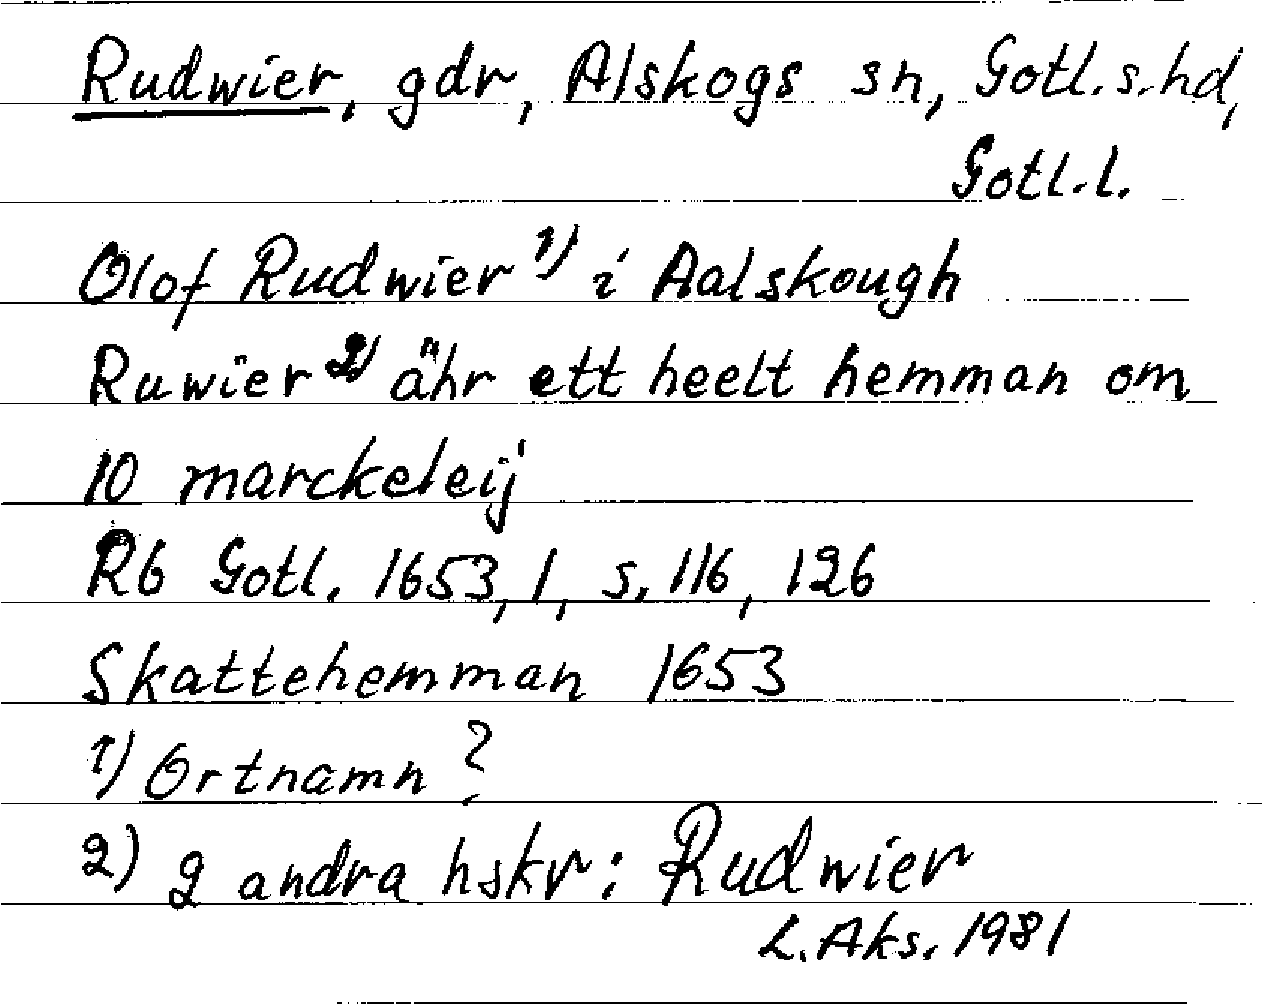 Rudwier, gdr, Alskogs sn, Gotl. s. hd,
Gotl. l.
Olof Rudwier 1) i Aalskough
Ruwier 2) ähr ett heelt hemman om
10 marckeleij
Rb Gotl. 1653, 1, s. 116, 126
Skattehemman 1653
1) Ortnamn?
2) 2 andra hskr: Rudwier
L. Aks. 1981